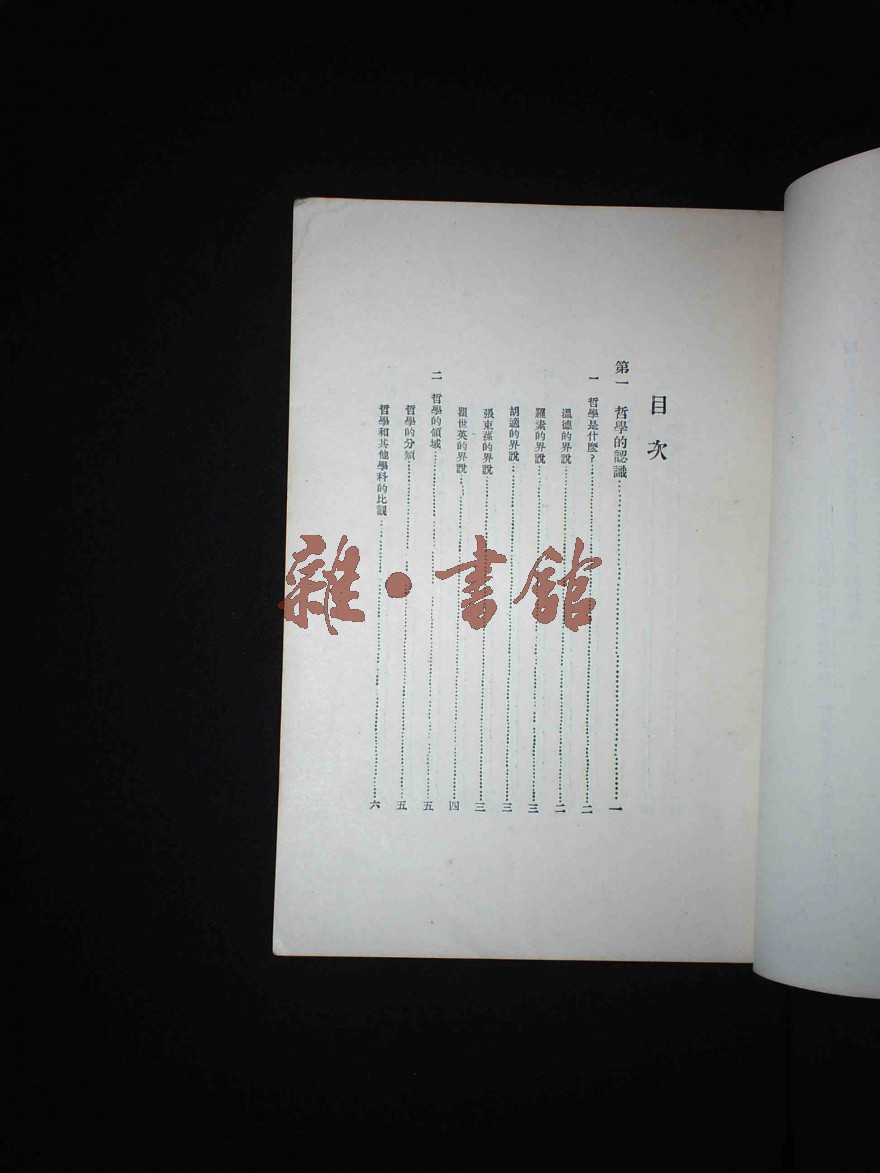 目次
第一 哲學的認識……一
一 哲學是什麼？……二
溫德的界說……二
羅素的界說……三
胡適的界說……三
張東蓀的界說……三
瞿世英的界說……四
二 哲學的領域……五
哲學的分類……五
哲學和其他學科的比觀……六
雜·書館